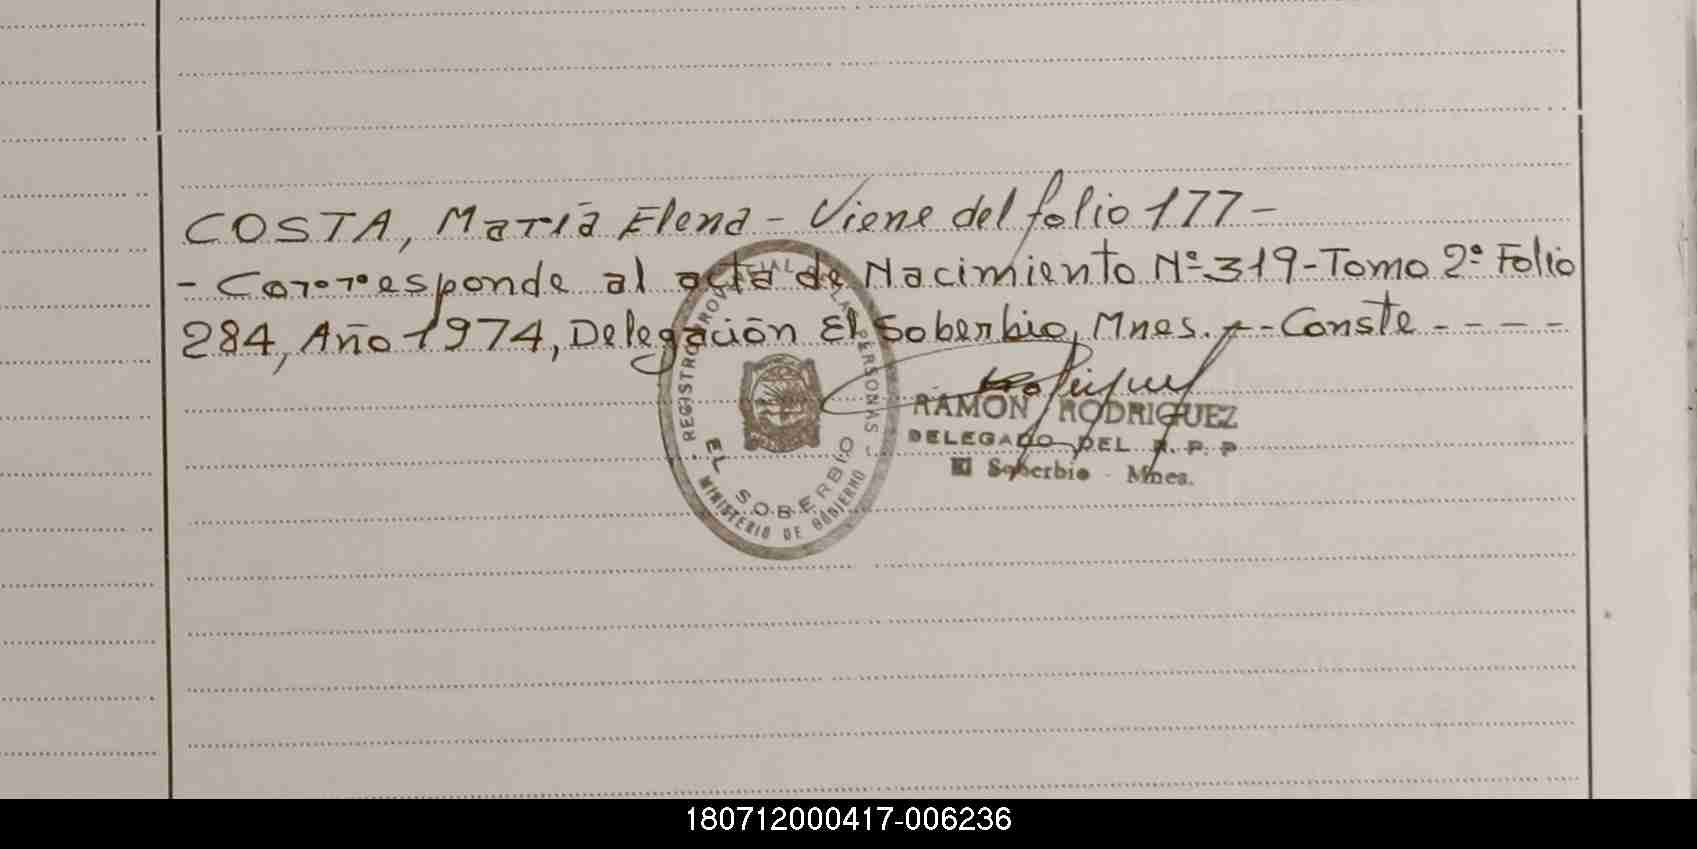 COSTA, María Elena - Viene del folio 177 -
- Corresponde al acta de Nacimiento Nº 319 - Tomo 2º Folio
284, Año 1974, Delegación El Soberbio, Mnes. - - Conste - - - -
REGISTRO PROVINCIAL DE LAS PERSONAS
EL SOBERBIO
MINISTERIO DE GOBIERNO
RAMON RODRIGUEZ
DELEGADO DEL R. P. P
El Soberbio - Mnes.
180712000417-006236